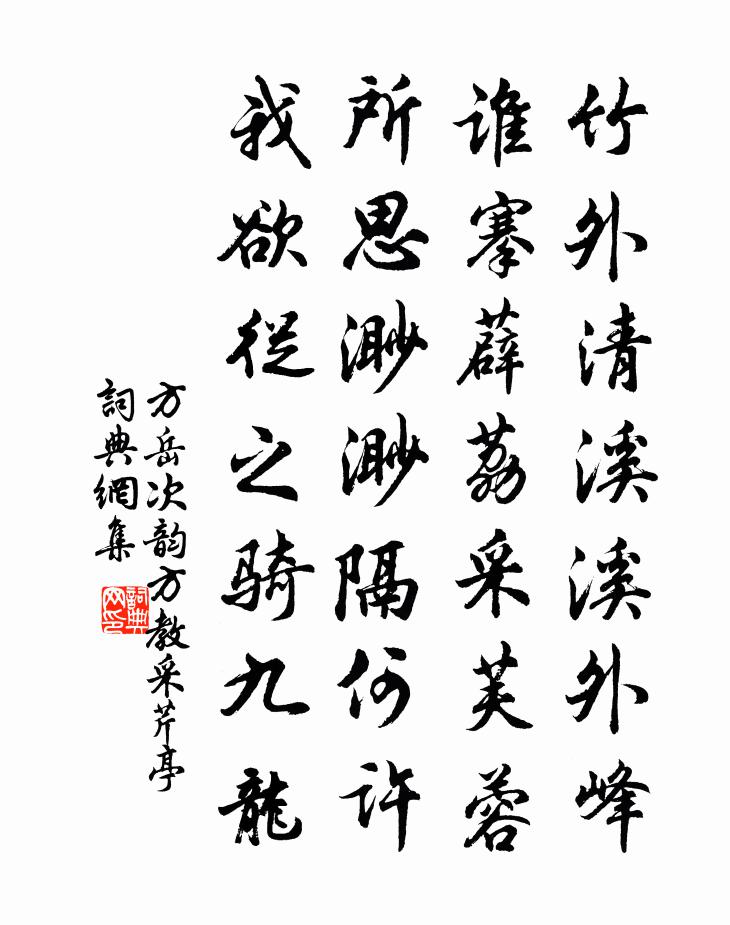 竹外清溪溪外峰
谁搴薜荔采芙蓉
所思渺渺隔何许
我欲從之骑九龍
方岳次韵方教采芹亭
詞典網集
詞典网印